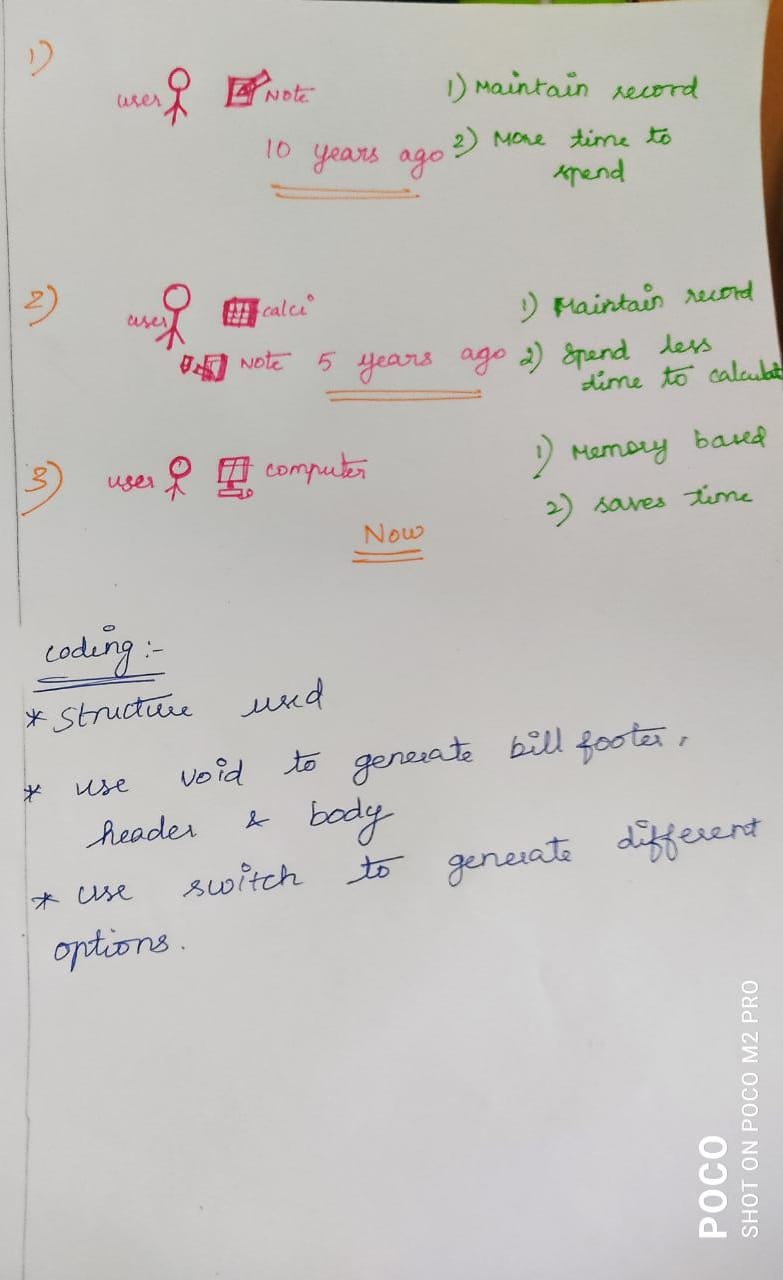 1)
user NOTE
10 years ago
1) Maintain record
2) More time to
spend
2)
user calci
NOTE 5 years ago
1) Maintain record
2) Spend less
time to calculat
3)
user computer
Now
1) Memory based
2) saves time
coding :-
* Structure used
* use void to generate bill footer,
header & body
* use switch to generate different
options.
POCO
SHOT ON POCO M2 PRO